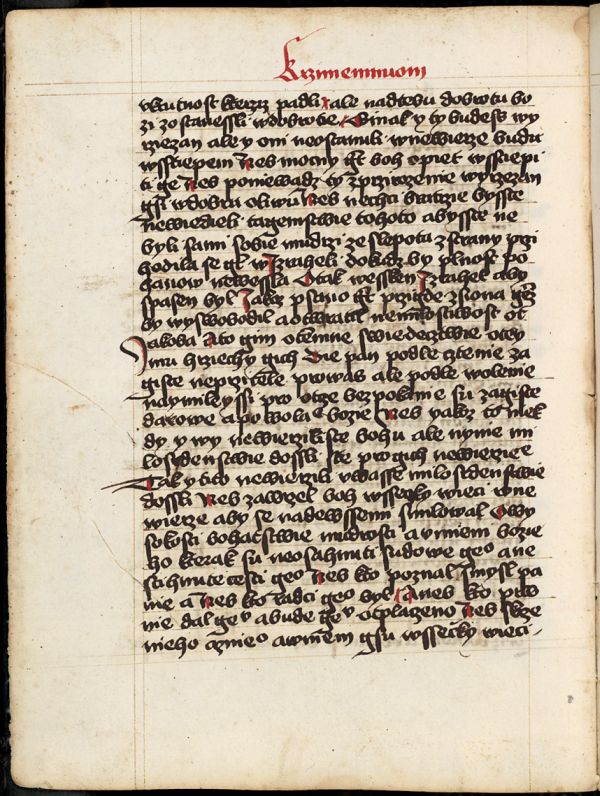 Krzimeninuom
vkrutnost kterziz padli ale nadtebu dobrotu bo
zi zostanessli wdobrotie Ginak y ty budess wy
rzezan ale y oni neostanuli wnewierze budu
wsstiepeni Neb mocny gt boh opiet wsstiepi
ti ge Neb poniewadz ty zprzirozenie wyrzezan
gsi wdobru oliwu Neb nechci bratrzie bysste
newiedieli tagemstwie tohoto abysste ne
byli sami sobie mudrzi ze slepota zstrany przi
hodila se gt w Izraheli dokudz by plnost po
hanow newessla Atak wessken Izrahel aby
spasen byl Jakoz psano gt przigde zSiona
by wyswobodil a otwratil nemilostiwost ot
Jakoba Ato gim otemne swiedecztwie otey
mu hrziechy gich Die pan podle cztenie za
giste neprzitele prowas ale podle wolenie
naymileyssi pro otcze bez pokanie su zagiste
darowe a powolanie bozie Neb yakoz niek
dy y wy newierzilisste bohu ale nynie mi
losrdenstwie dossli ste pro gich newierzenie
Tak y tito newierzili vwasse milosrdenstwie
dossli Neb zawrzel boh wsseczky wieci wne
wierze aby se nadewssemi smilowal Owy
sokosti bohatstwie mudrosti a vmieni bozie
ho kterak su neosahnuti sudowe geo a ne
stihnute cesti geo Neb kto poznal smysl pa
nie a Neb kto radci geo byl Aneb kto prwe
nie dal gev a bude gev otplaczeno Neb skrze
nieho aznieo awniem gsu wsseczky wieci